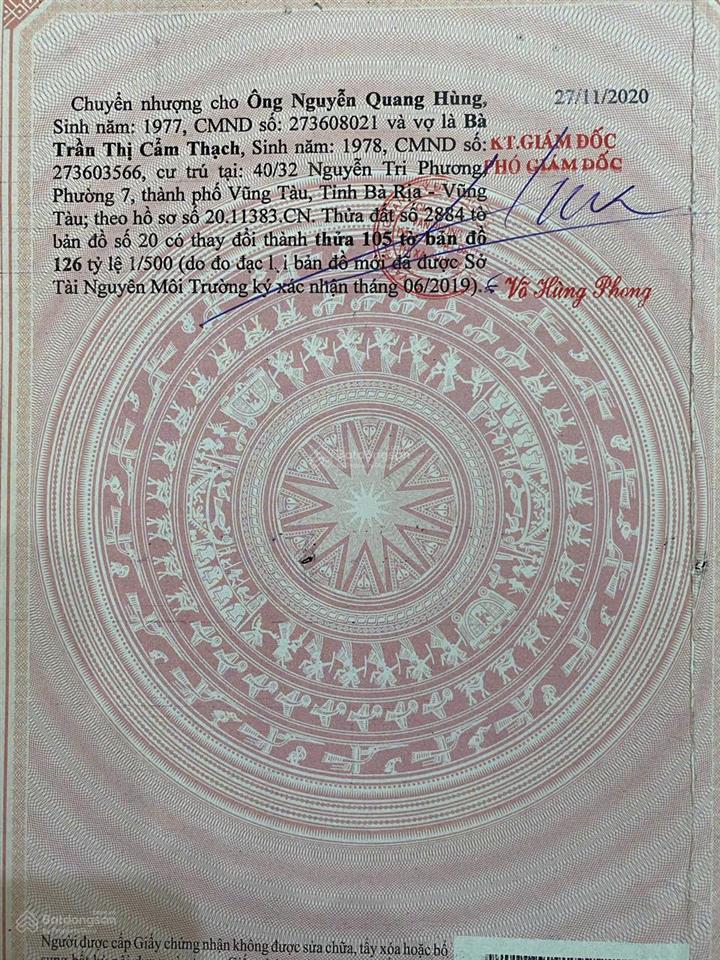 Chuyển nhượng cho Ông Nguyễn Quang Hùng,
27/11/2020
Sinh năm: 1977, CMND số: 273608021 và vợ là Bà
Trần Thị Cẩm Thạch, Sinh năm: 1978, CMND số:
KT.GIÁM ĐỐC
273603566, cư trú tại: 40/32 Nguyễn Tri Phương
PHÓ GIÁM ĐỐC
Phường 7, thành phố Vũng Tàu, Tỉnh Bà Rịa - Vũng
Tàu; theo hồ sơ số 20.11383.CN. Thửa đất số 2884 tờ
bản đồ số 20 có thay đổi thành thửa 105 tờ bản đồ
126 tỷ lệ 1/500 (do đo đạc lại bản đồ mới đã được Sở
Tài Nguyên Môi Trường ký xác nhận tháng 06/2019).
Võ Hùng Phong
Batdongsan
Batdongsan
Người được cấp Giấy chứng nhận không được sửa chữa, tẩy xóa hoặc bổ